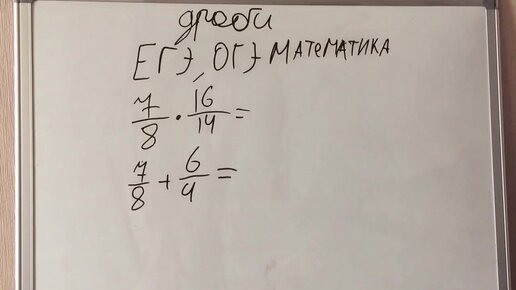 дроби
ЕГЭ, ОГЭ МАТЕМАТИКА
7/8 · 16/14 =
7/8 + 6/4 =